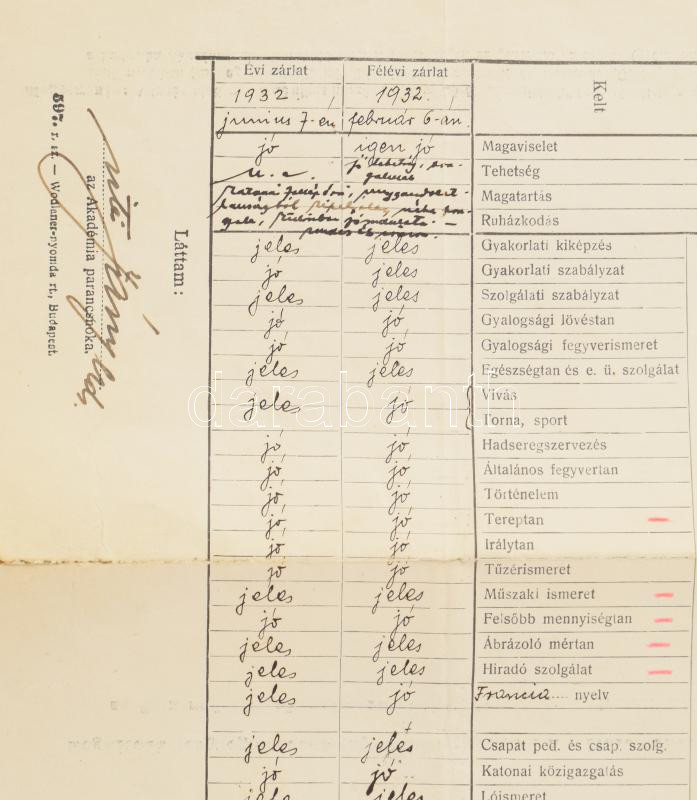 Évi zárlat Félévi zárlat Kelt
1932. 1932.
junius 7-én február 6-án.
jó igen jó Magaviselet
Tehetség
Magatartás
Ruházkodás
jeles jeles Gyakorlati kiképzés
jó jeles Gyakorlati szabályzat
jeles jeles Szolgálati szabályzat
jó jó Gyalogsági lövéstan
jó jó Gyalogsági fegyverismeret
jeles jeles Egészségtan és e. ü. szolgálat
jeles jó Vivás
Torna, sport
jó jó Hadseregszervezés
jó jó Általános fegyvertan
jó jó Történelem
jó jó Tereptan
jó jó Irálytan
jó jó Tűzérismeret
jeles jeles Műszaki ismeret
jó jó Felsőbb mennyiségtan
jeles jeles Ábrázoló mértan
jeles jeles Hiradó szolgálat
jeles jó Francia.... nyelv
jeles jeles Csapat ped. és csap. szolg.
jó jó Katonai közigazgatás
jeles jeles Lóismeret
Láttam:
az Akadémia parancsnoka.
597. r. sz. — Wodianer-nyomda rt., Budapest.
darabanth